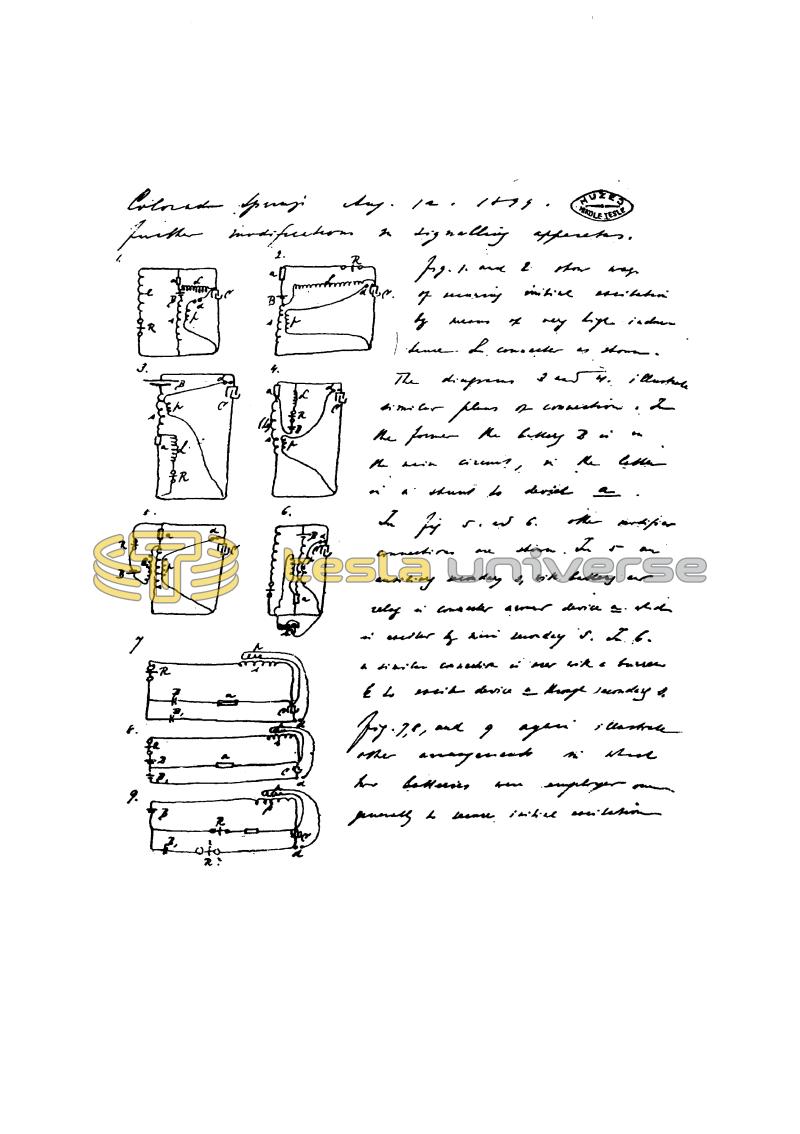 Colorado Springs Aug. 12. 1899.
MUZEJ
NIKOLE TESLE
Further modifications in signalling apparatus.
1.
2.
Fig. 1. and 2 show ways
of securing initial excitation
by means of very high induc-
tance L connected as shown.
3.
4.
The diagrams 3 and 4. illustrate
similar plans of connection. In
the former the battery B is in
the main circuit, in the latter
in a shunt to device a.
5.
6.
In fig 5. and 6. other modified
connections are shown. In 5 an
auxiliary secondary s, with battery and
relay is connected around device a which
is excited by main secondary S. In 6.
a similar connection is used with a
to excite device a through secondary s.
7
8.
9.
Fig. 7, 8, and 9 again illustrate
other arrangements in which
two batteries were employed
generally to secure initial excitation
tesla universe